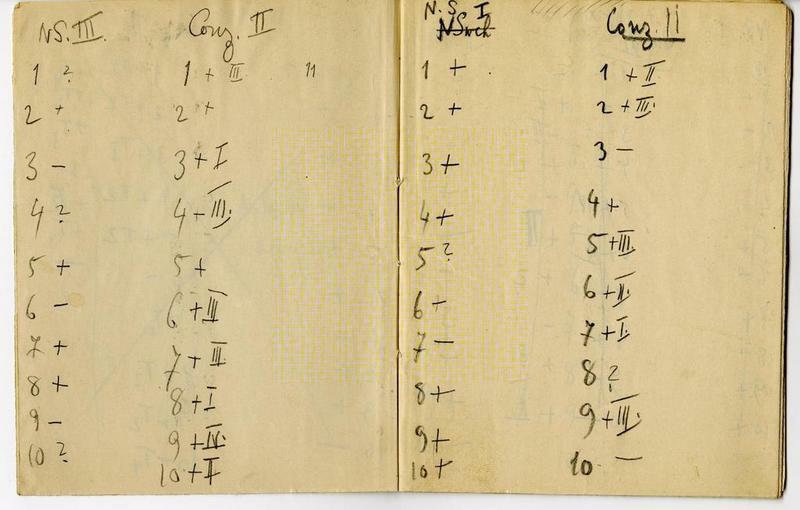 NS. III.
1 ?
2 +
3 –
4 ?
5 +
6 –
7 +
8 +
9 –
10 ?
Conz. II
1 + III 11
2 +
3 + I
4 – III.
5 +
6 + III
7 + III
8 + I
9 + IV.
10 + II
N.S. I
1 +
2 +
3 +
4 +
5 ?
6 –
7 –
8 +
9 +
10 +
Conz. II
1 + II
2 + III.
3 –
4 +
5 + III.
6 + II.
7 + I.
8 ?
9 + III.
10 –